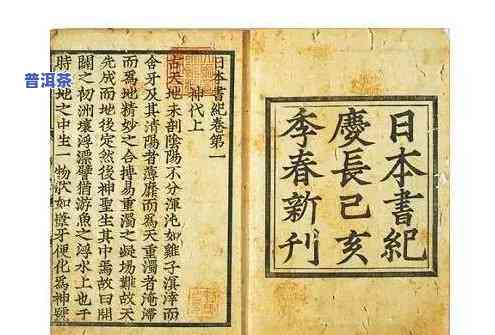 日本書紀
慶長己亥
季春新刊
日本書紀卷第一
神代上
古天地未剖陰陽不分渾沌如雞子溟涬而
含牙及其清陽者薄靡而爲天重濁者淹滯
而爲地精妙之合摶易重濁之凝場難故天
先成而地後定然後神聖生其中焉故曰開
闢之初洲壤浮漂譬猶游魚之浮水上也于
時天地之中生一物狀如葦牙便化爲神號
普洱茶